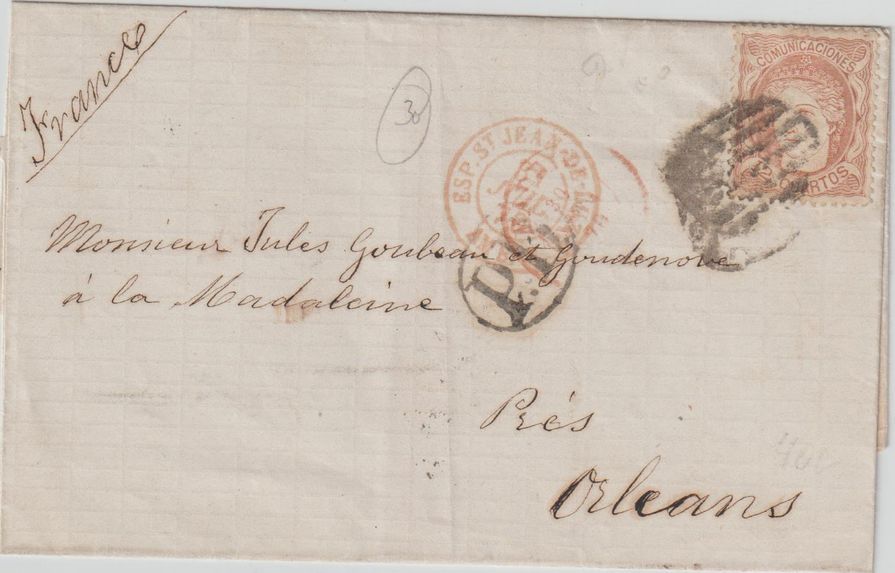 France
30
COMUNICACIONES
CUARTOS
ESP. ST JEAN-DE-
P.D.
Monsieur Jules Goubeau et Goudenove
à la Madaleine
Près
Orleans
40€